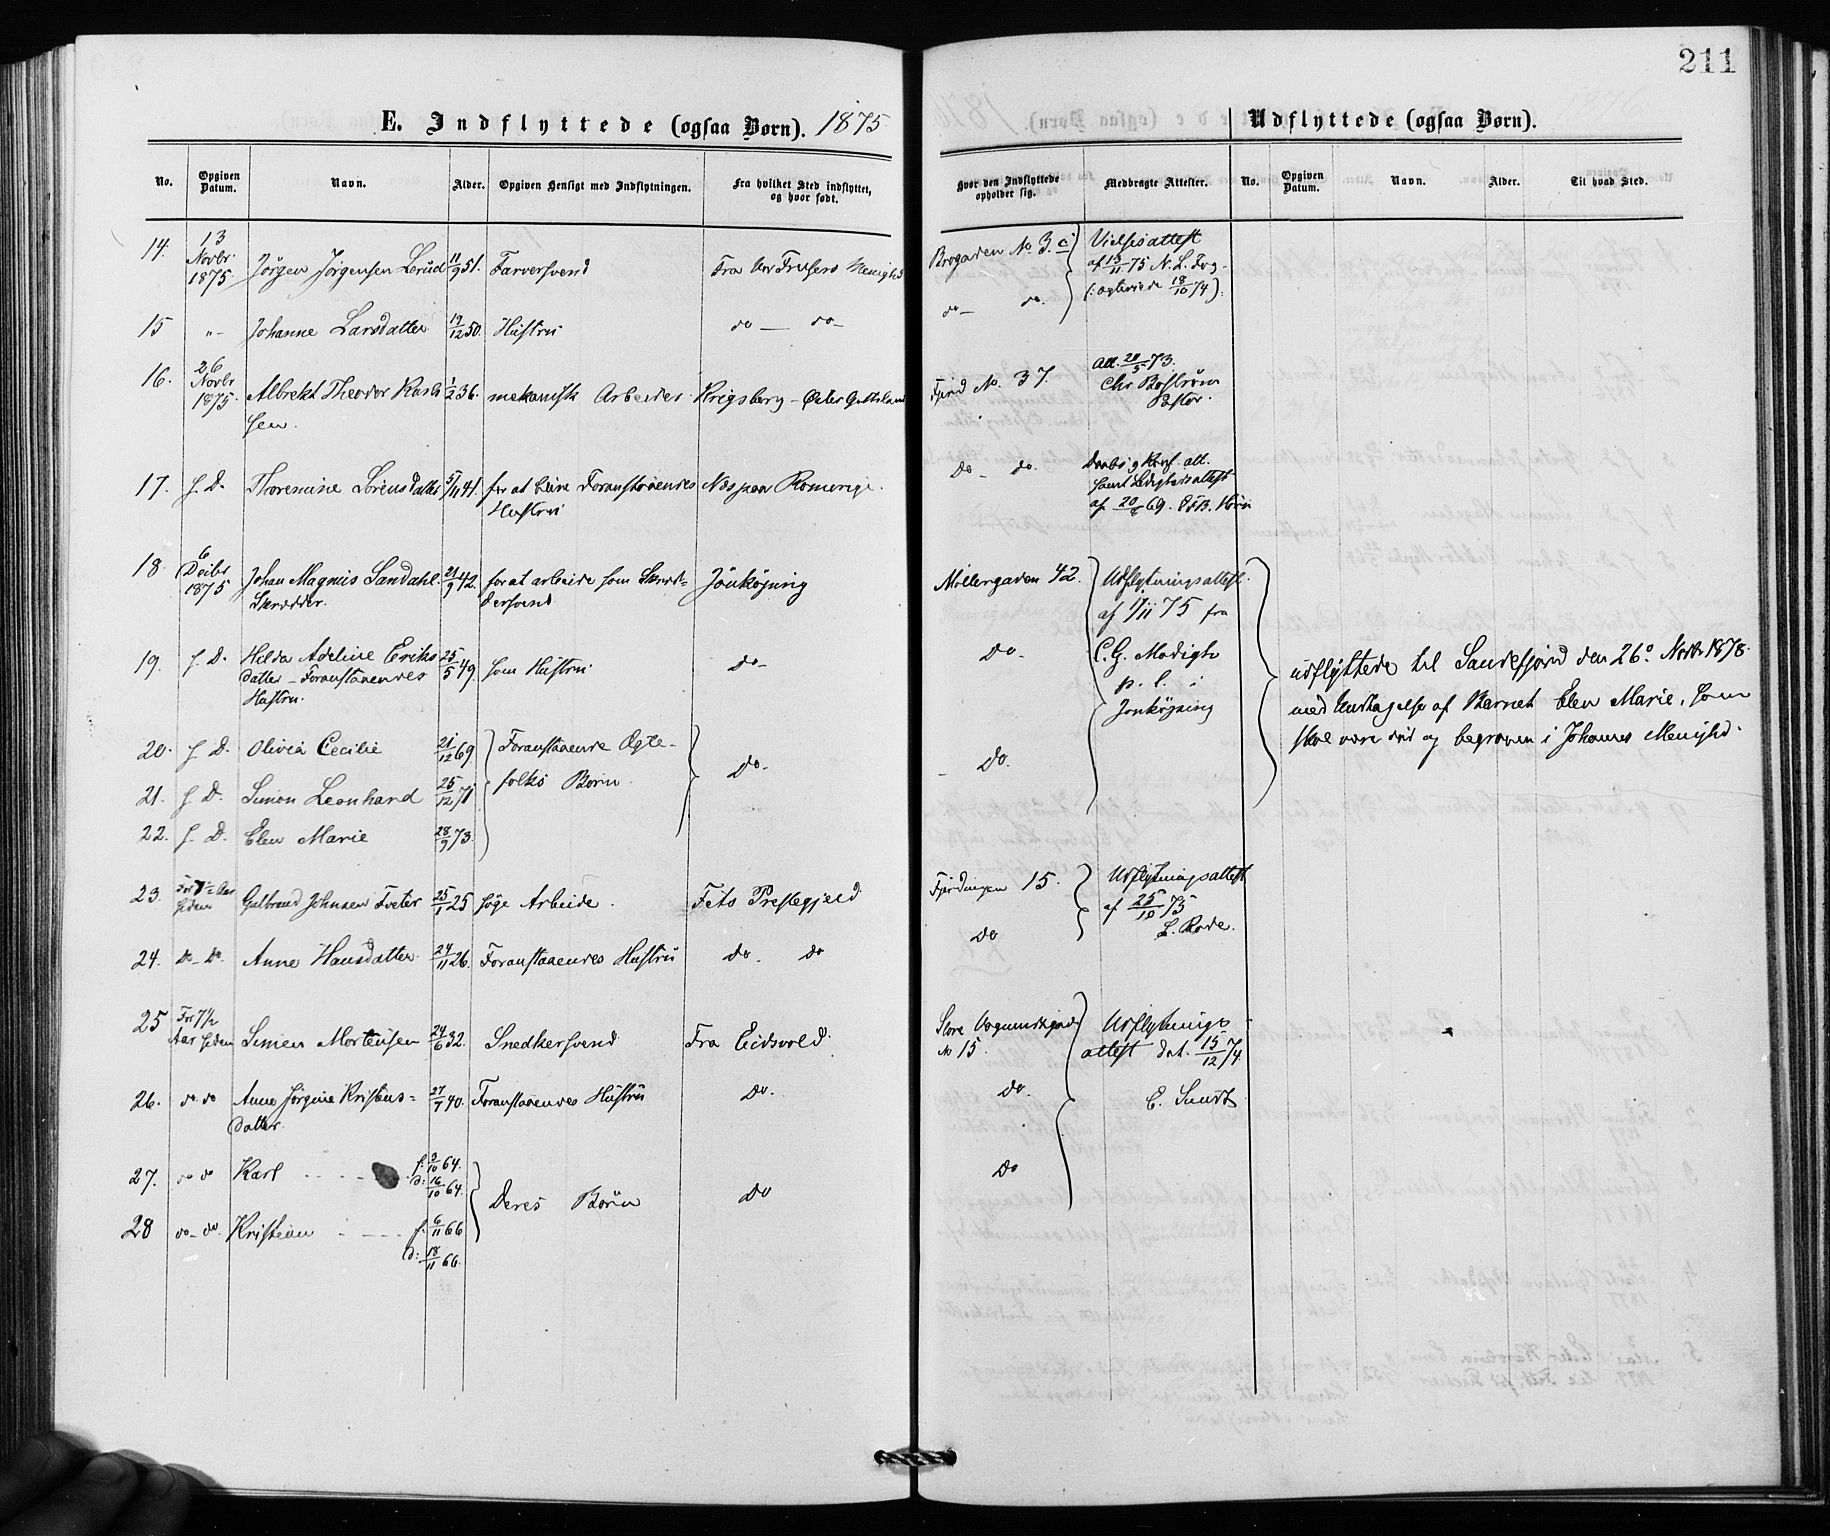 211
E. Indflyttede (ogsaa Børn). 1875
No. Opgiven Datum. Navn. Alder. Opgiven Hensigt med Indflytningen. Fra hvilket Sted indflyttet, og hvor født.
14. 13 Novbr. 1875 Jörgen Jörgensen Lerud 11/9 51. Farversvend Fra Vor Frelsers Menighd
15 "- Johanne Larsdatter 19/12 50. Hustru do — do-
16. 26 Novbr 1875. Albrekt Theodor Karls 1/2 36. mekanisk Arbeider Krigsberg - Öster Gøtland
sen.
17. s. D. Thoremine Lorensdatter 5/11 41. for at blive Foranstaaendes Næs paa Romerige.
Hustru
18. 6 Dcibr 1875 Johan Magnus Sandahl. 21/9 42. for at arbeide som Skræd= Jönköping
Skrædder. dersvend
19. s. D. Hilda Adeline Eriks 25/5 49. som Hustru do-
datter - Foranstaaendes
Hustru.
20. s. D. Olivia Cecilie 21/12 69. Foranstaaende Ægte-
21. s. D. Simon Leonhard 25/12 71. folks Børn. Do-
22. s. D. Elen Marie 28/9 73.
23. For 7 1/2 Aar siden Gulbrand Johnsen Tveter 25/1 25 søge Arbeide. Fets Prestegjeld
24. do - do. Anne Hansdatter. 24/11 26. Foranstaaendes Hustru do. do
25 For 7 1/2 Aar siden Simen Mortensen 24/6 32. Snedkersvend Fra Eidsvold.
26. do do Anne Jörgine Kristens= 27/7 40. Foranstaaendes Hustru Do.
datter.
27. do do Karl f. 3/10 64.
d: 16/10 64. Deres Børn Do
28 do - do. Kristian f. 6/11 66
d: 18/11 66.
Udflyttede (ogsaa Børn).
Hvor den Indflyttede opholder sig. Medbragte Attester. No. Opgiven Datum. Navn. Alder. Til hvad Sted.
Brogaden No. 3.c Vielsesattest
af 13/11 75 N. L. Fog-
do- do. (: ægteviede 18/10 74).
Fjerd No. 37. Att. 20/5 73.
Chr Boström
Pastor.
Do- do. Daabs og Konf. att.
samt Ledighedsattest
af 20/ 69.
Møllergaden 42. Udflytningsattest.
af 1/11 75 fra
Do- C. G. Modigh
p. l. i
Jonköping
Do.
udflyttede til Sandefjord den 26. Novbr 1878.
med Undtagelse af Barnet Elen Marie, som
skal være död og begraven i Johannes Menighd.
Fjerdingen 15. Udflytningsattest
af 25/10 75
Do L. Rode.
Store Vognmandsgade Udflytnings-
No 15. attest dat. 15/12 74.
Do. E. Sundt
Do